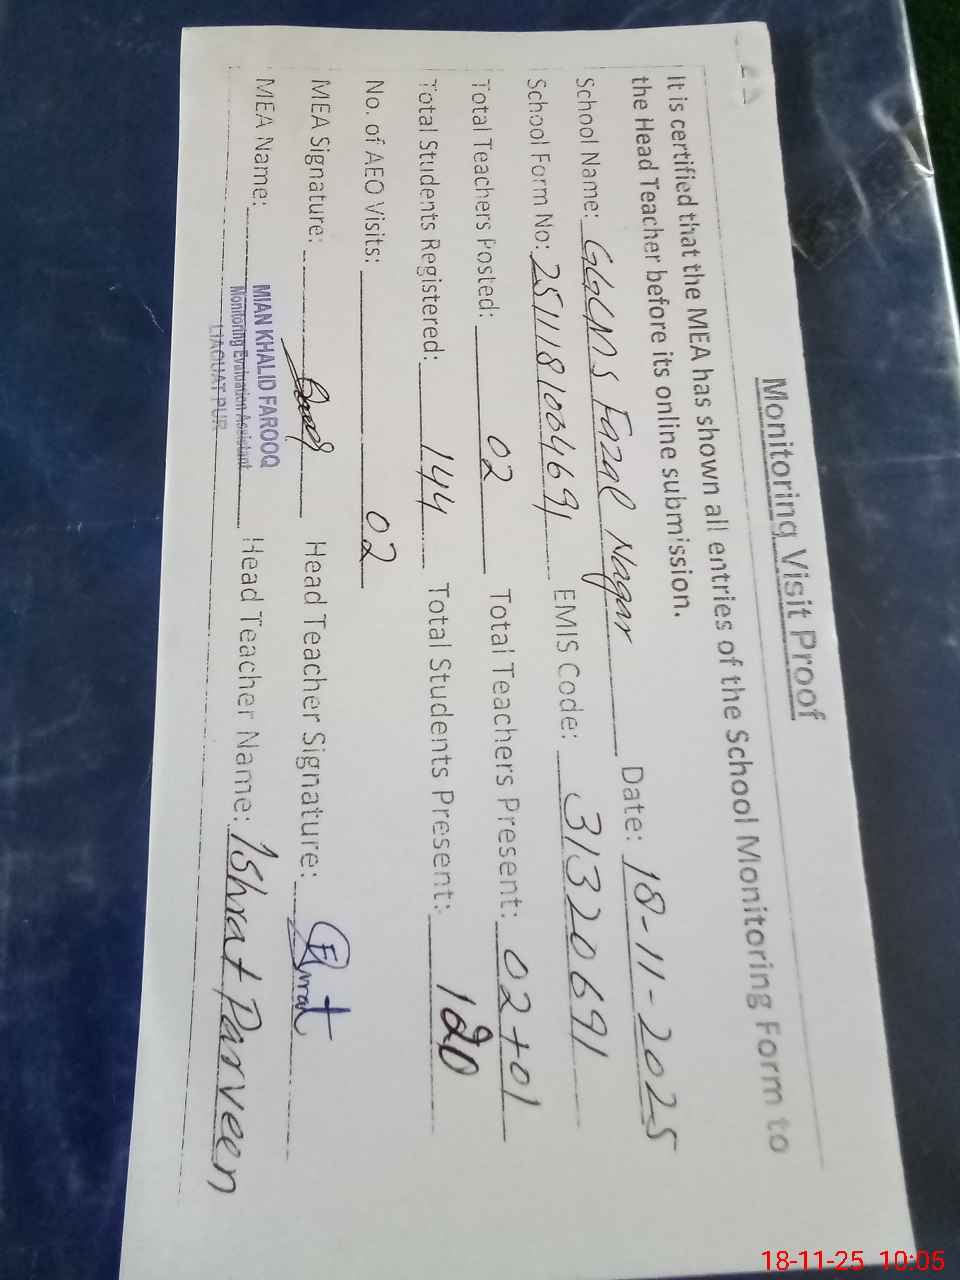 Monitoring Visit Proof
It is certified that the MEA has shown all entries of the School Monitoring Form to
the Head Teacher before its online submission.
School Name: GGCMS Fazal Nagar Date: 18-11-2025
School Form No: 2511181004691 EMIS Code: 31320691
Total Teachers Posted: 02 Total Teachers Present: 02+01
Total Students Registered: 144 Total Students Present: 120
No. of AEO Visits: 02
MEA Signature: Head Teacher Signature:
MEA Name: MIAN KHALID FAROOQ Head Teacher Name: Ishrat Parveen
Monitoring Evaluation Assistant
LIAQUAT PUR
18-11-25 10:05